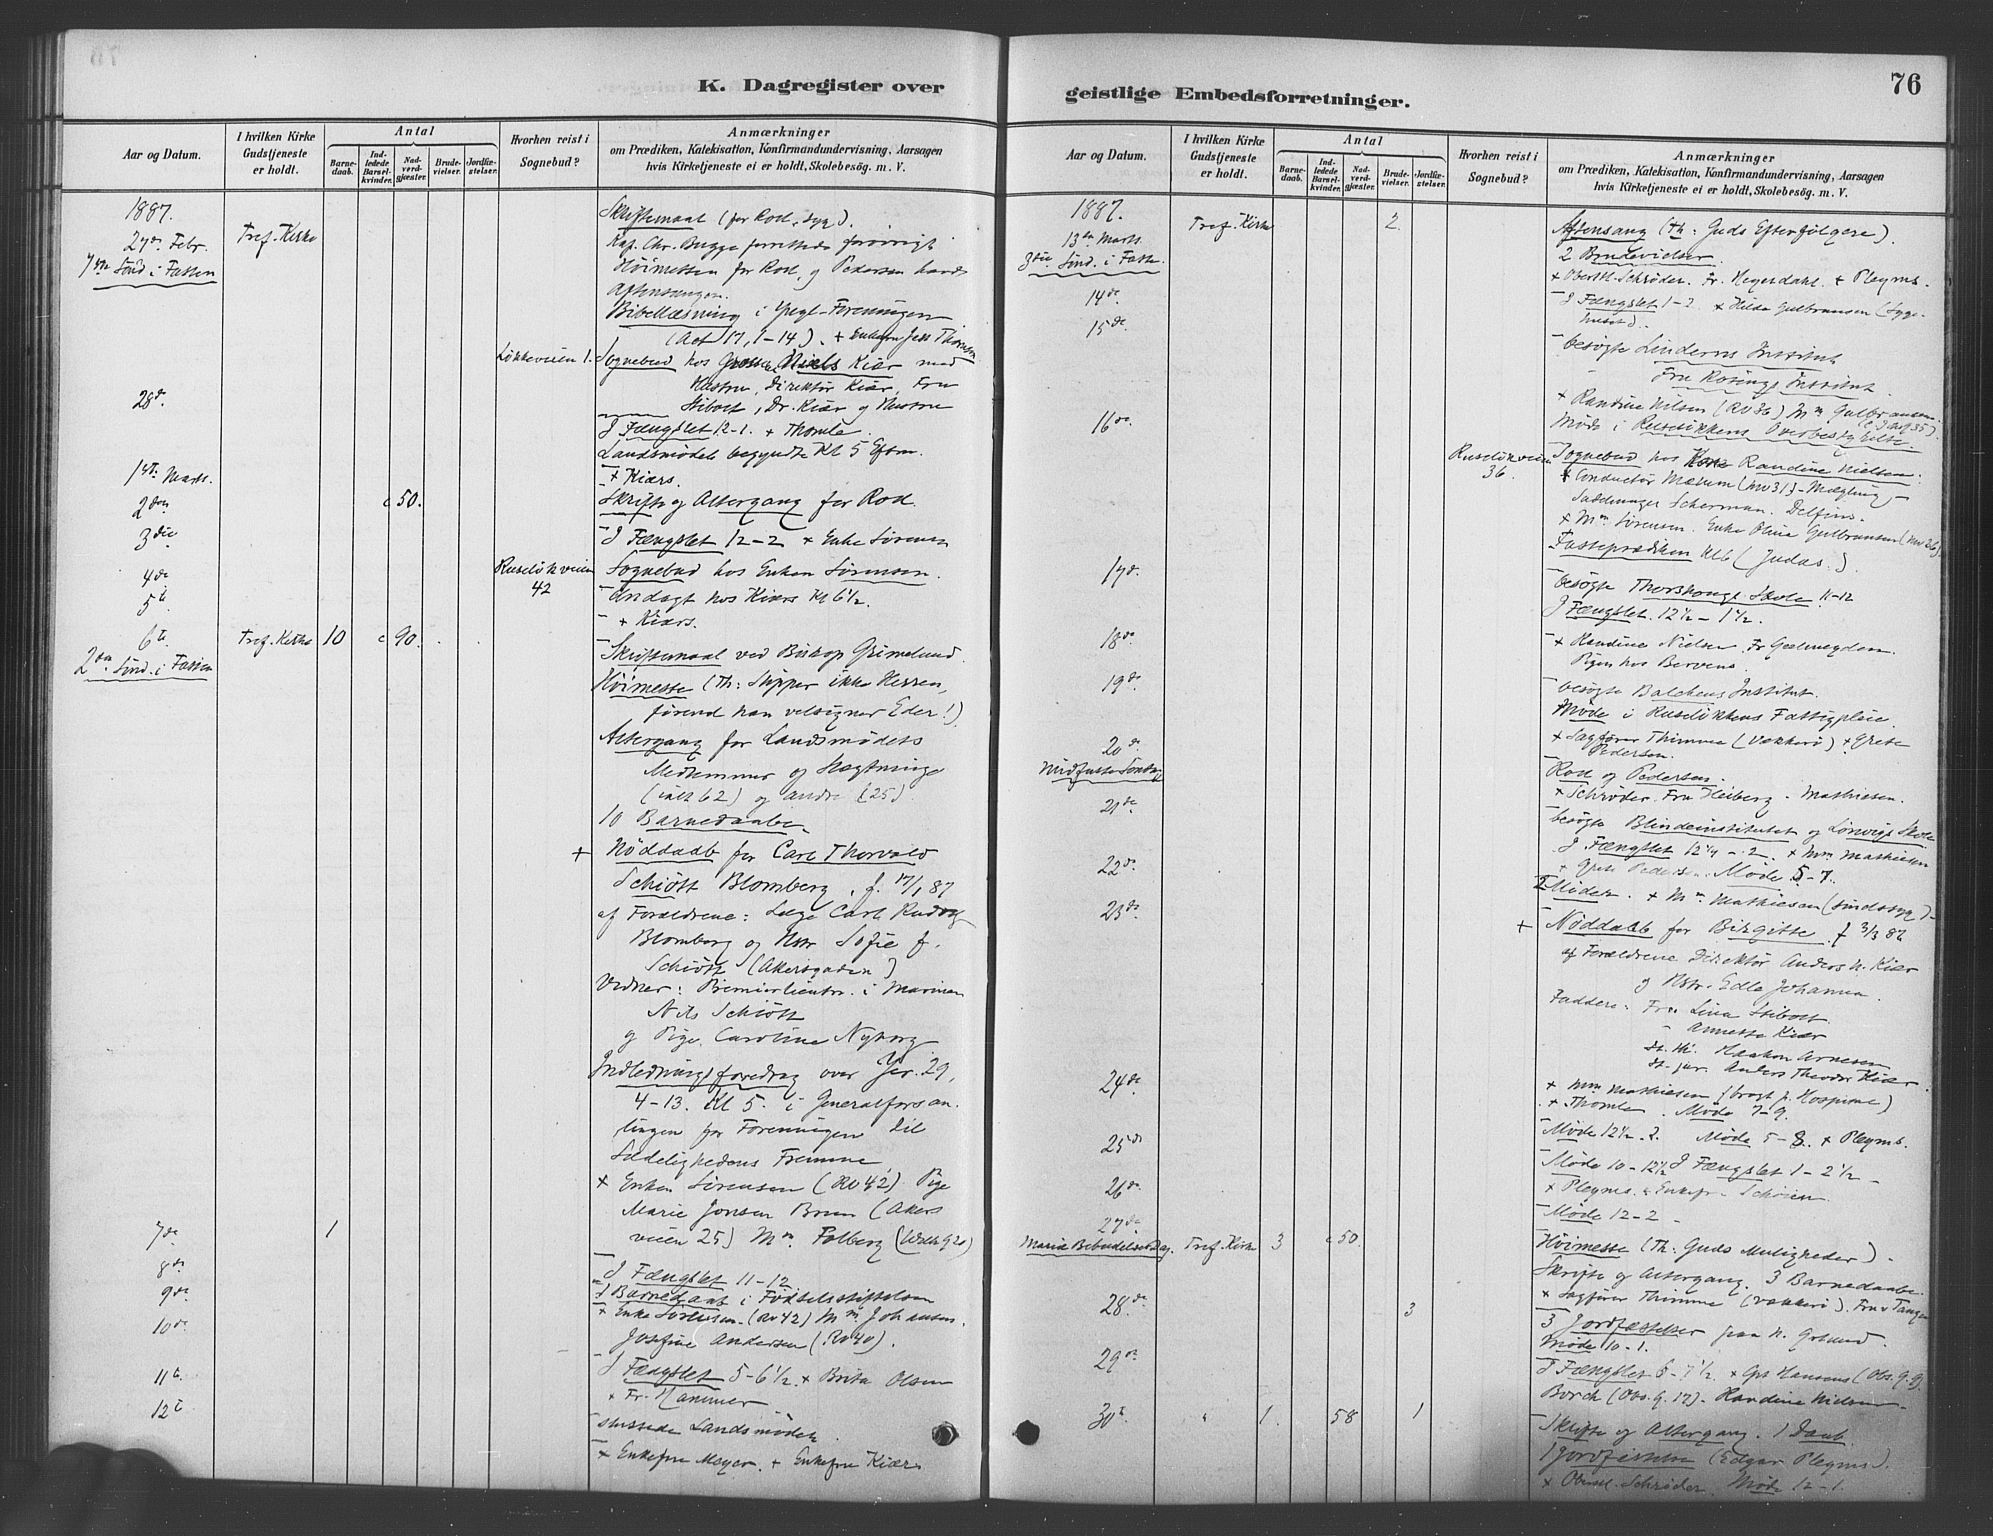 K. Dagregister over
Aar og Datum.
I hvilken Kirke Gudstjeneste er holdt.
Antal
Barne-daab.
Ind-ledede Barsel-kvinder.
Nad-verd-gjæster.
Brude-vielser.
Jordfæ-stelser.
Hvorhen reist i Sognebud?
Anmærkninger
om Prædiken, Katekisation, Konfirmandundervisning, Aarsagen
hvis Kirketjeneste ei er holdt, Skolebesög. m. V.
1887.
Skriftemaal (for Rod, syg).
27de Febr. Tref. Kirke
Kap. Chr. Bugge forrettede forøvrigt
1ste Sønd. i Fasten
Høimessen for Rod, og Pedersen holdt
Aftensangen.
Bibellæsning i Yngl. Foreningen
(Act 17, 1-14).
Løkkeveien 1. Sognebud hos Niels Kiær med
Hustru, Direktør Kiær, Fru
Stibolt, Dr. Kiær og Hustru
28de
I Fængslet 12-1. + Thomle.
Landsmødet begyndte Kl 5 Eftm.
1ste Marts.
+ Kiærs.
2den c 50. Skrifte og Altergang for Rod.
3die
I Fængslet 12-2 + Enke Sørensen
4de Ruseløkveien 42 Sognebud hos Enken Sørensen.
5te
Andagt hos Kiærs Kl 6½.
+ Kiærs.
6te Tref. Kirke 10 c 90.
2den Sønd. i Fasten
Skriftemaal ved Biskop Grimelund.
Høimesse (Th: Slipper ikke Herren,
førend han velsigner Eder!)
Altergang for Landsmødets
Medlemmer og Slægtninge
(ialt 62) og andre (25)
10 Barnedaabe.
+ Nøddaab for Carl Thorvald
Schiøtt Blomberg, f. 17/1 87
af Forældrene: Læge Carl Rudolf
Blomberg og Hstr Sofie f.
Schiøtt (Akersgaden)
Vidner: Premierlieutn. i Marinen
Nils Schiøtt
og Pige Caroline Nyborg
Indledningsforedrag over Jer. 29,
4-13. Kl 5. i Generalforsam-
lingen for Foreningen til
Sædelighedens Fremme
+ Enken Sørensen (RV 42) Pige
Marie Jonsen Bruun (Akers
veien 25)
7de 1
8de
I Fængslet 11-12
9de
1 Barnedaab i Fødselsstiftelsen
+ Enke Sørensen (RV 42) Mm Johansen.
10de
Josefine Andersen (RV 40).
I Fængslet 5-6½ + Brita Olsen
11te
+ Fr. Hammer
12te
sluttede Landsmødet
+ Enkefru Meyer. + Enkefru Kiær
geistlige Embedsforretninger.
76
Aar og Datum.
I hvilken Kirke Gudstjeneste er holdt.
Antal
Barne-daab.
Ind-ledede Barsel-kvinder.
Nad-verd-gjæster.
Brude-vielser.
Jordfæ-stelser.
Hvorhen reist i Sognebud?
Anmærkninger
om Prædiken, Katekisation, Konfirmandundervisning, Aarsagen
hvis Kirketjeneste ei er holdt, Skolebesög. m. V.
1887. Tref. Kirke 2. Aftensang (Th: Guds Efterfølgere).
13de Marts
2 Brudevielser.
3die Sønd. i Faste.
+ Oberstl. Schrøder. Fr. Heyerdahl. + Pleyms.
14de
I Fængslet 1-2 + Hilda Gulbransen (Syge-
huset).
15de
besøgte Linderns Institut
Fru Rosings Institut
+ Randine Nilsen (RV 36) Mm Gulbransen
16de
Møde i Ruseløkkens Overbestyrelse
Ruseløkveien 36. Sognebud hos Randine Nielsen.
Fasteprædiken Kl 6 (Judas.)
17de
besøgte Thorshougs Skole 11-12
I Fængslet 12½-1½.
18de + Randine Nielsen
Pigen hos Bervens.
19de
besøgte Balchens Institut.
Møde i Ruseløkkens Fattigpleie.
+ Sagfører Thimme (Vækkerø) + Grete
Pedersen.
20de
Midfaste Søndag Rod og Pedersen.
+ Schrøder. Fru Heiberg. Mathiesen.
21de
besøgte Blindeinstitutet og Lønvigs Skole
I Fængslet 12¼-2. + Mm Mathiesen
22de
+ Grete Peders. Møde 5-7.
2 Møder. + Mm Mathiesen (sindssyg)
23de
+ Nøddaab for Birgitte f 3/3 87
af Forældrene Direktør Anders N. Kiær
og Hstr. Edle Johanna.
Faddere: Fru Lina Stibolt
Annette Kiær
St. th. Haakon Arnesen
St. jur. Anders Theodor Kiær
24de
+ Mm Mathiesen (bragt p. Hospitme)
+ Thomle. Møde 7-9.
25de
Møde 12½-2. Møde 5-8. + Pleyms.
Møde 10-12½ I Fængslet 1-2½
26de
+ Pleyms. Enkefr. Schiøen.
27de
Møde 12-2
Mariæ Bebudelses Dag. Tref. Kirke 3 c 50.
Høimesse (Th: Guds Muligheder).
Skrifte og Altergang. 3 Barnedaabe.
+ Sagfører Thimme (Vækkerø). Fru Tangen
28de 3
3 Jordfæstelser paa N. Gravlund.
Møde 10-1.
29de
I Fængslet 6-7½
Borch (Obs. g. 17). Randine Nielsen
30te " 1. 58 1
Skrifte og Altergang. 1 Daab.
1 Jordfæstelse (Edgar Pleyms).
+ Oberstl. Schrøder. Møde 12-1.